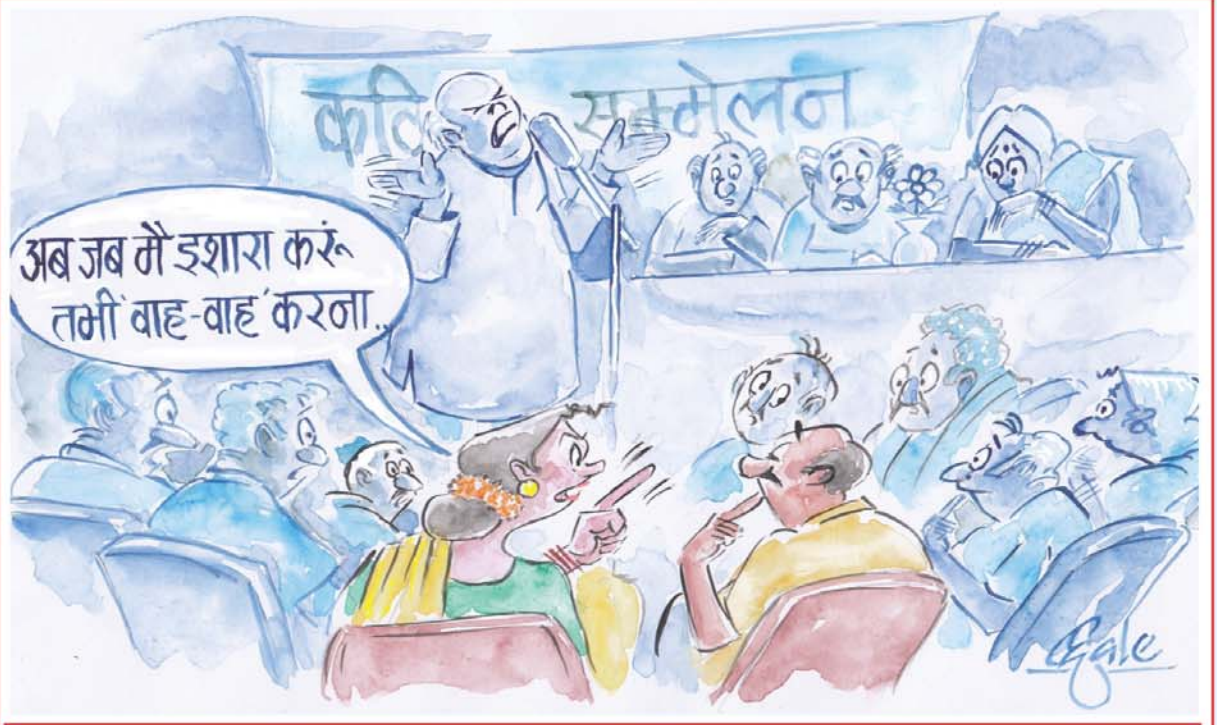 कवि सम्मेलन
अब जब मै इशारा करूं
तभी 'वाह-वाह' करना..